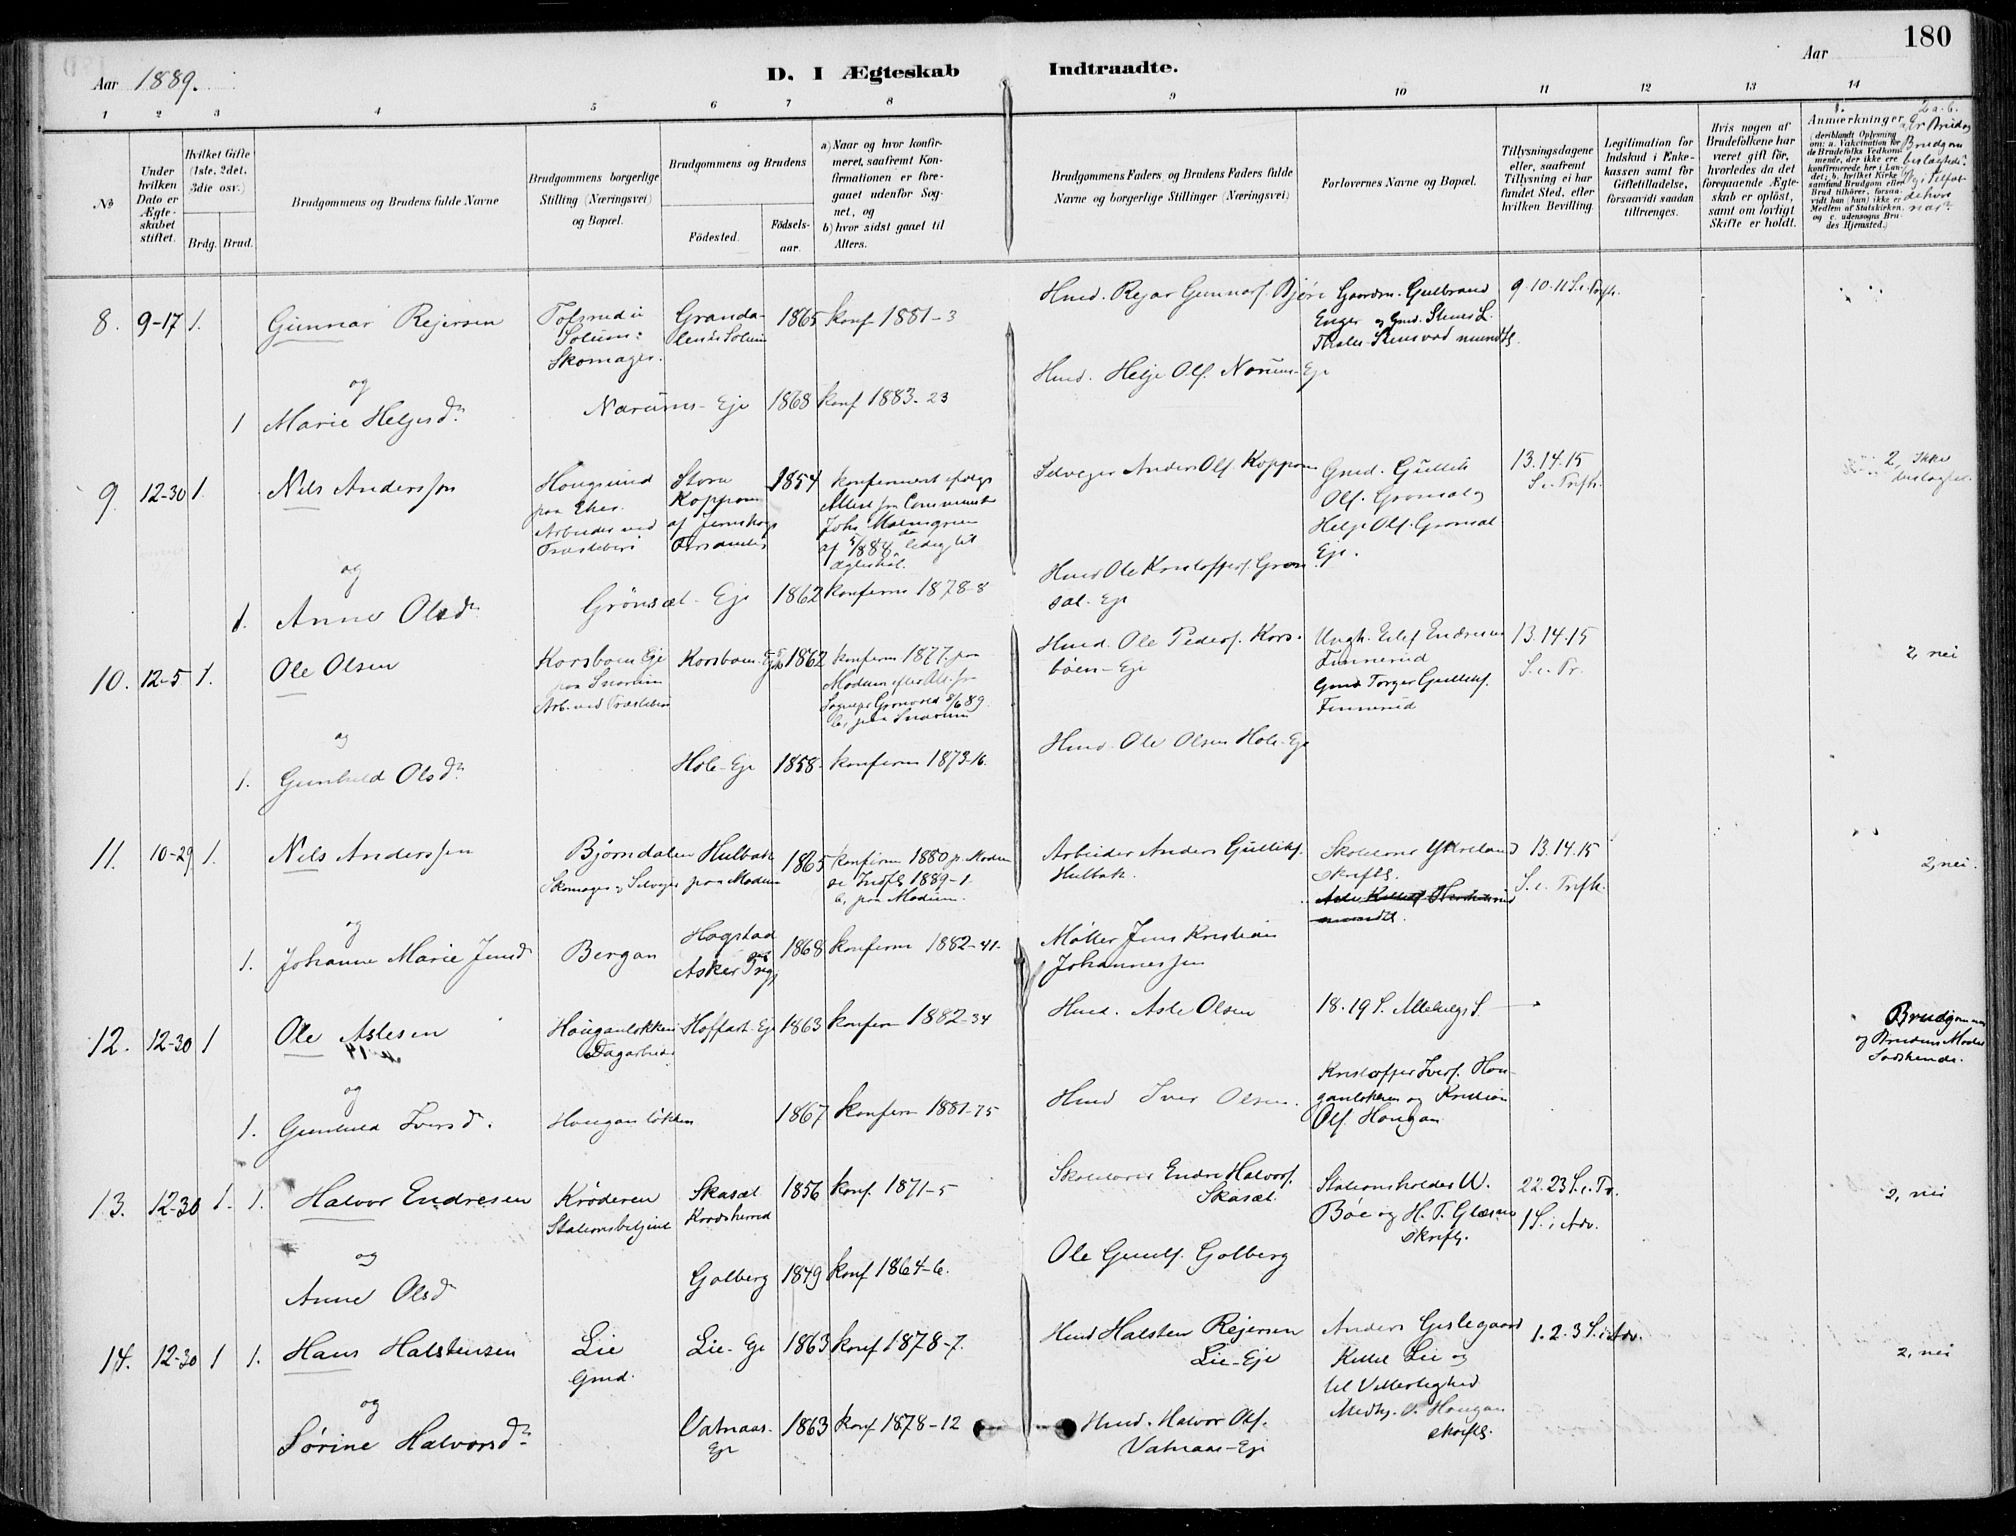 180
Aar 1889.
D. I Ægteskab Indtraadte.
Aar
1 2 3 4 5 6 7 8 9 10 11 12 13 14
№
Under hvilken Dato er Ægteskabet stiftet.
Hvilket Gifte (1ste, 2det, 3die osv.)
Brdg. Brud.
Brudgommens og Brudens fulde Navne
Brudgommens borgerlige Stilling (Næringsvei) og Bopæl.
Brudgommens og Brudens
Fødested.
Fødselsaar.
a) Naar og hvor konfirmeret, saafremt Konfirmationen er foregaaet udenfor Sognet, og
b) hvor sidst gaaet til Alters.
Brudgommens Faders og Brudens Faders fulde Navne og borgerlige Stillinger (Næringsvei)
Forlovernes Navne og Bopæl.
Tillysningsdagene eller, saafremt Tillysning ei har fundet Sted, efter hvilken Bevilling.
Legitimation for Indskud i Enkekassen samt for Giftetilladelse, forsaavidt saadan tiltrænges.
Hvis nogen af Brudefolkene har været gift før, hvorledes da det foregaaende Ægteskab er opløst, samt om lovligt Skifte er holdt.
Anmerkninger
(deriblandt Oplysning om: a. Vakcination for de Brudefolks Vedkommende, der ikke ere konfirmerede her i Landet; b. hvilket Kirkesamfund Brudgom eller Brud tilhører, forsaavidt han (hun) ikke er Medlem af Statskirken, og c. udensogns Brudes Hjemsted.)
8. 9-17 1. Gunnar Rejersen
Solum:
Skomager.
1865 konf 1881-3
Hmd. Rejar Gunnars. Bjøre
Gaardm. Gulbrand
Enger og Gmd.
9.10.11 S. e. Trfh.
og
1 Marie Helgesdr
Narums-Eje 1868 konf 1883-23
Hmd. Helje Ols. Narums-Eje
9. 12-30 1. Nils Anderssen
Hougsund
paa Eker.
Arbeider ved
Træsliberi
Stora
Koppom
1854
Selveger Anders Ols. Koppom
Gmd. Gullik
Ols. Grønsal og
Helje Ols. Grønsal
Eje.
13.14.15
S. e. Trfh.
2, ikke
beslægtet.
og
1. Anne Olsdr
Grønsal-Eje 1862 konferm 1878-8
Hmd Ole Kristoffers. Grønsal-Eje
10. 12-5 1. Ole Olsen
Korsboen Eje
paa Snarum
Arb. ved Træsliberi
Korsboen-Eje 1862 konferm 1877 paa
Modum efter Att. fra
b, paa Snarum
Hmd. Ole Peders. Korsbøen-Eje
Ungk. Eilef Endresen
Finnerud
Gmd Torger Gulliks.
Finnerud
13.14.15
S. e. Tr.
2, nei
og
1. Gunhild Olsdr
Hole-Eje 1858 konferm 1873-16
Hmd. Ole Olsen Hole-Eje
11. 10-29 1. Nils Anderssen
Bjørndalen
Skomager og Selveger
Hulbak
paa Modum
1865 konferm 1880 p. Modum
se Indfl 1889-1
b, paa Modum.
Arbeider Anders Gulliks.
Hulbak.
skriftl.
13.14.15
S. e. Trfh.
2, nei.
og
1. Johanne Marie Jensdr
Bergan
Hogstad
Asker
1868 konferm 1882-41.
Møller Jens Kristian
Johannessen
12. 12-30 1 Ole Aslesen
Houganløkken
Dagarbeider
Hoffart-Eje 1863 konferm 1882-34
Hmd. Asle Olsen
18.19 S. Allehelgs S.
Brudgommens
og Brudens Moder
Sødskende.
og
1. Gunhild Iversdr.
Houganløkken 1867 konferm 1881-75
Hmd Iver Olsen.
Kristoffer Ivers. Houganløkken og Kristian
Ols. Hougan
13. 12-30 1. 1. Halvor Endresen
Krøderen
Stationsbetjent
Skasæt
Krødsherred
1856 konf. 1871-5
Skolelærer Endre Halvors.
Skasæt.
Stationsholder W.
Bøe og H. T. Glæsne
skriftl.
22.23 S. e. Tr.
1 S. i Adv.
2, nei
og
Anne Olsdr
Golberg 1849 konf 1864-6.
Ole Gunds. Golberg
14. 12-30 1 1. Hans Halstensen
Lie
Gmd.
Lie-Eje 1863 konf 1878-7.
Hmd Halsten Rejersen
Lie-Eje
Anders Gislegaard
Kittil Lie og
til Vitterlighed
Medhj. O. Hougan
skriftl.
1.2.3 S. i Adv.
2, nei
og
Sørine Halvorsdr
Vatnaas-Eje 1863 konf 1878-12
Hmd. Halvor Ols.
Vatnaas-Eje